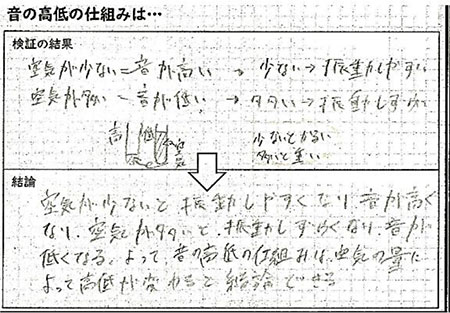 音の高低の仕組みは…
検証の結果
空気が少ない=音が高い → 少ない→振動しやすい
空気が多い－音が低い → 多い→振動しずらい
高 低 空気
少ないとかるい
多いと重い
結論
空気が少ないと振動しやすくなり、音が高く
なり、空気が多いと、振動しずらくなり、音が
低くなる。よって、音の高低の仕組みは、空気の量に
よって高低が変わると結論できる